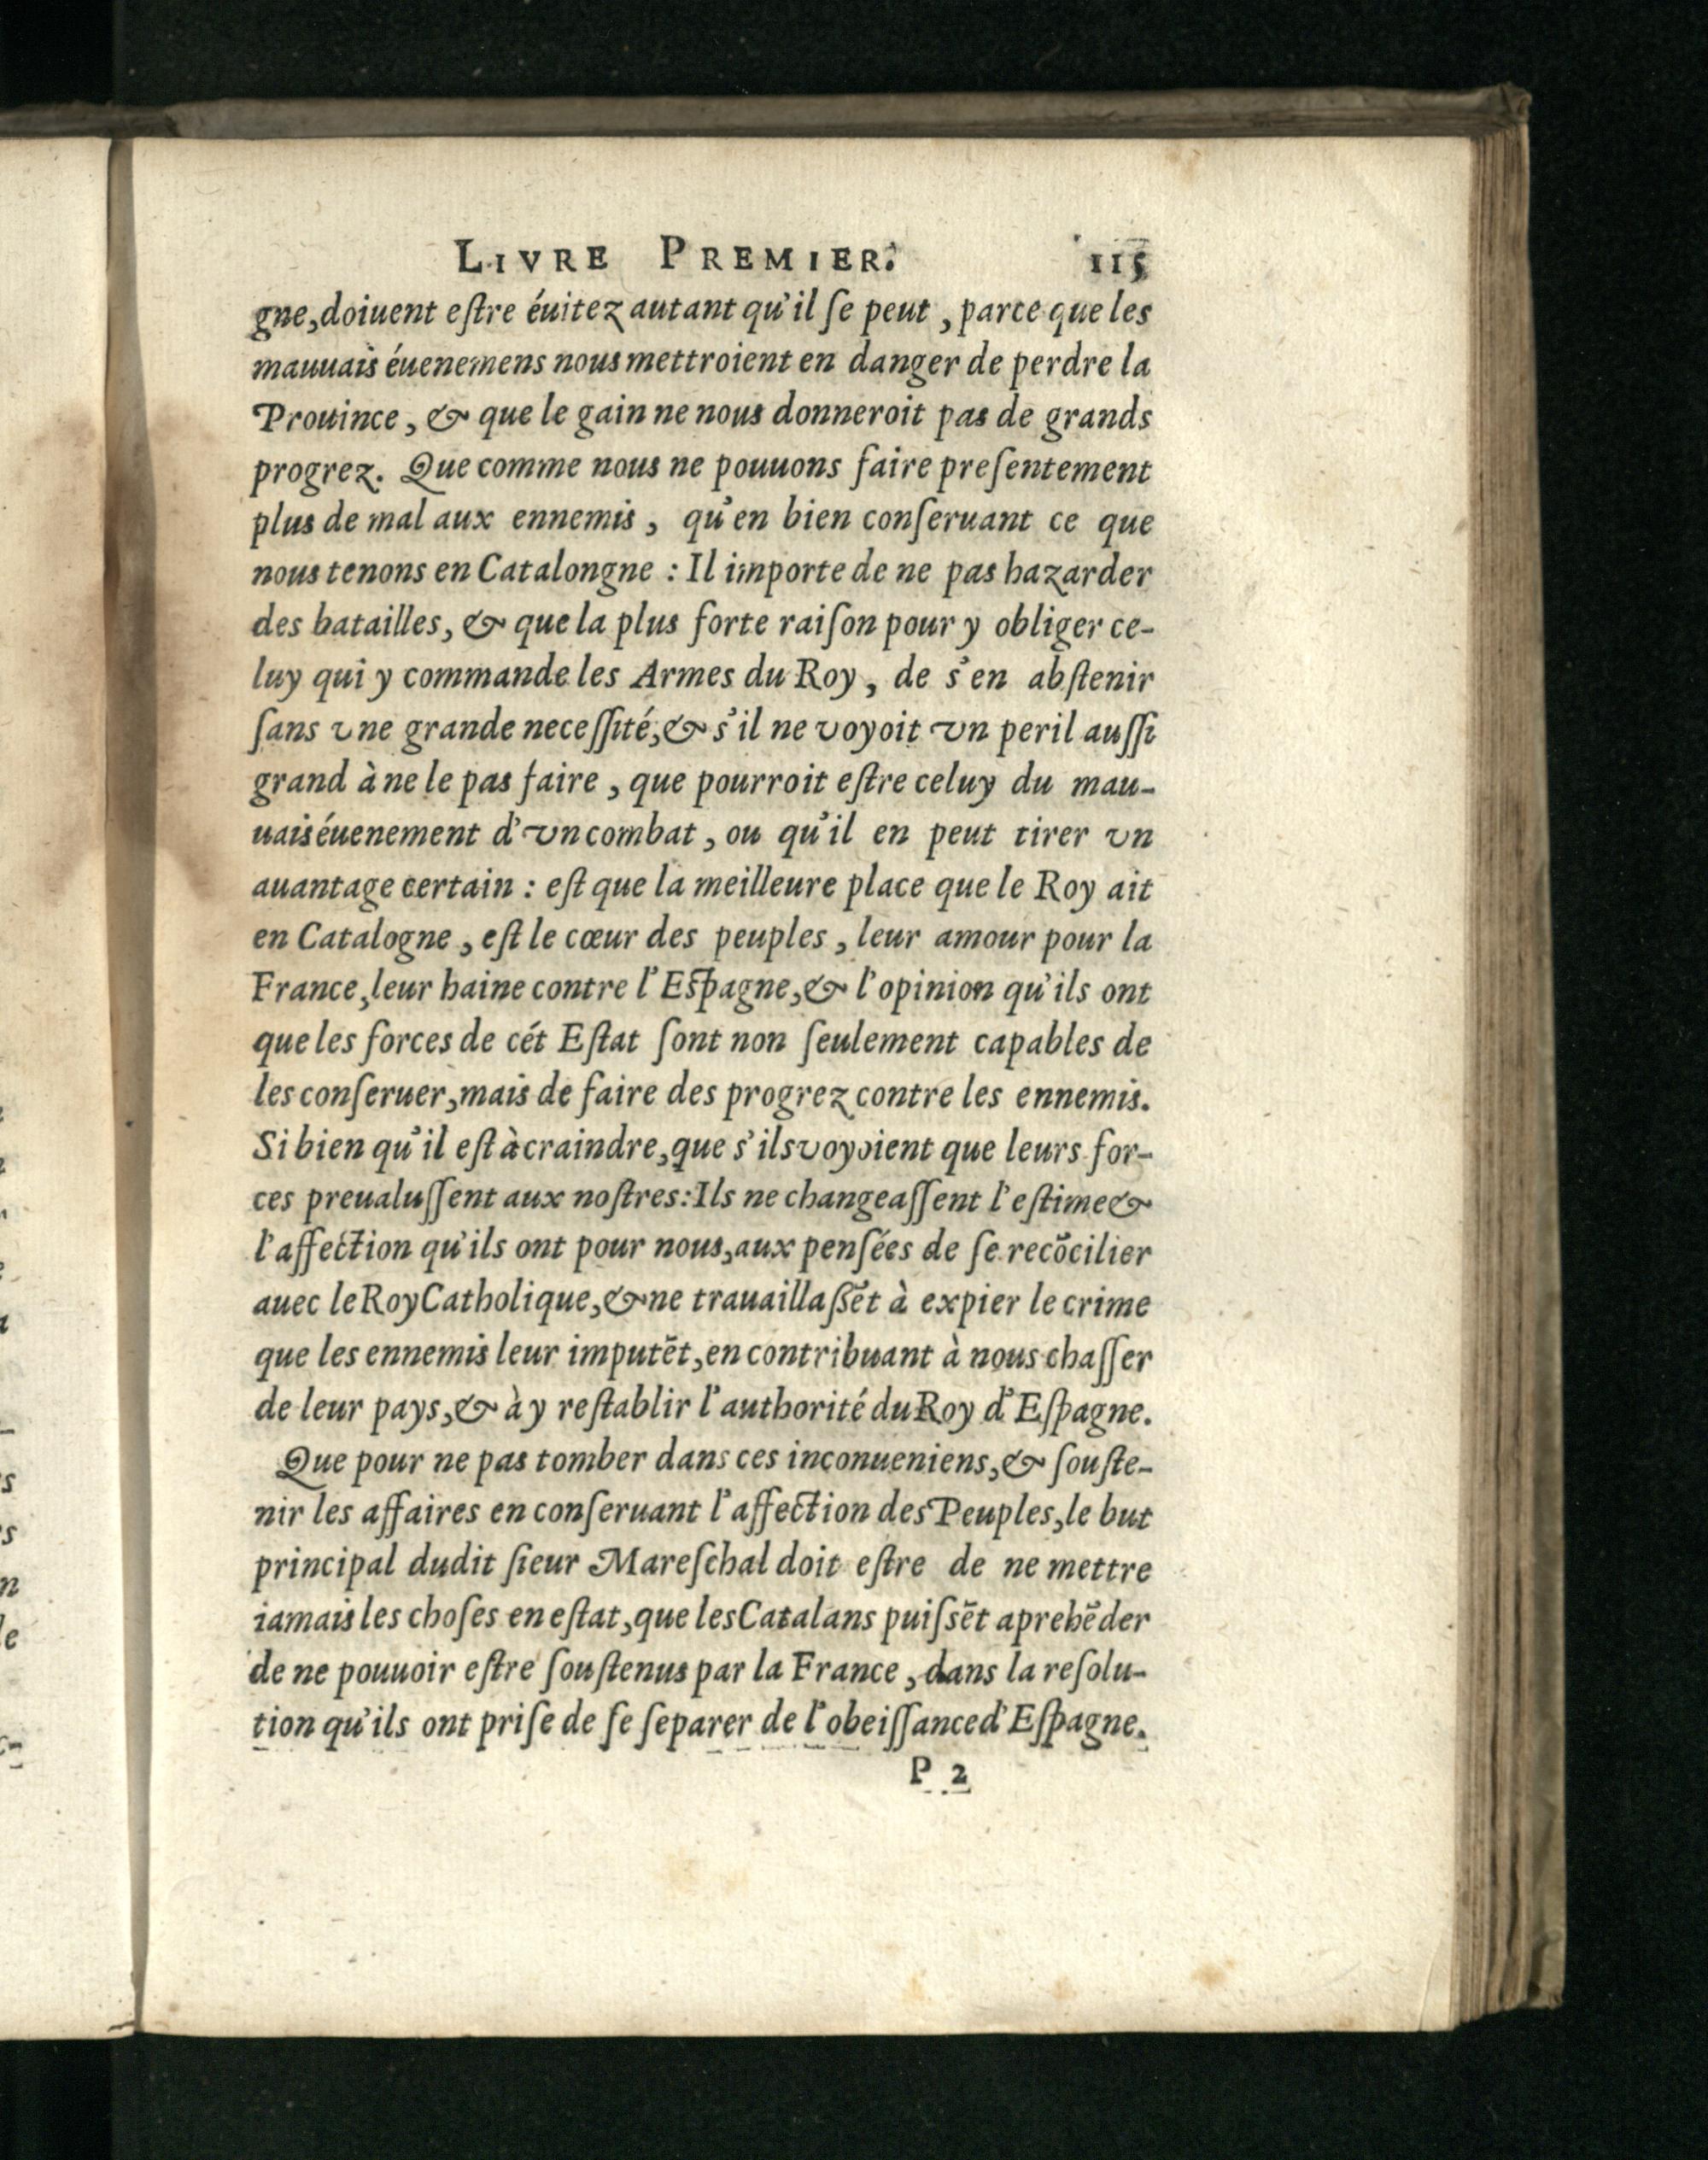 LIVRE PREMIER. 115
gne, doiuent eſtre éuitez autant qu'il ſe peut, parce que les
mauuais éuenemens nous mettroient en danger de perdre la
Prouince, & que le gain ne nous donneroit pas de grands
progrez. Que comme nous ne pouuons faire preſentement
plus de mal aux ennemis, qu'en bien conſeruant ce que
nous tenons en Catalongne : Il importe de ne pas hazarder
des batailles, & que la plus forte raiſon pour y obliger ce-
luy qui y commande les Armes du Roy, de s'en abſtenir
ſans vne grande neceſſité, & s'il ne voyoit vn peril auſſi
grand à ne le pas faire, que pourroit eſtre celuy du mau-
uais éuenement d'vn combat, ou qu'il en peut tirer vn
auantage certain : eſt que la meilleure place que le Roy ait
en Catalogne, eſt le cœur des peuples, leur amour pour la
France, leur haine contre l'Eſpagne, & l'opinion qu'ils ont
que les forces de cét Eſtat ſont non ſeulement capables de
les conſeruer, mais de faire des progrez contre les ennemis.
Si bien qu'il eſt à craindre, que s'ils voyoient que leurs for-
ces preualuſſent aux noſtres : Ils ne changeaſſent l'eſtime &
l'affection qu'ils ont pour nous, aux penſées de ſe recõcilier
auec le Roy Catholique, & ne trauaillaſſẽt à expier le crime
que les ennemis leur imputẽt, en contribuant à nous chaſſer
de leur pays, & à y reſtablir l'authorité du Roy d'Eſpagne.
Que pour ne pas tomber dans ces inconueniens, & ſouſte-
nir les affaires en conſeruant l'affection des Peuples, le but
principal dudit ſieur Mareſchal doit eſtre de ne mettre
iamais les choſes en eſtat, que les Catalans puiſsẽt aprehẽder
de ne pouuoir eſtre ſouſtenus par la France, dans la reſolu-
tion qu'ils ont priſe de ſe ſeparer de l'obeiſſance d'Eſpagne.
P 2